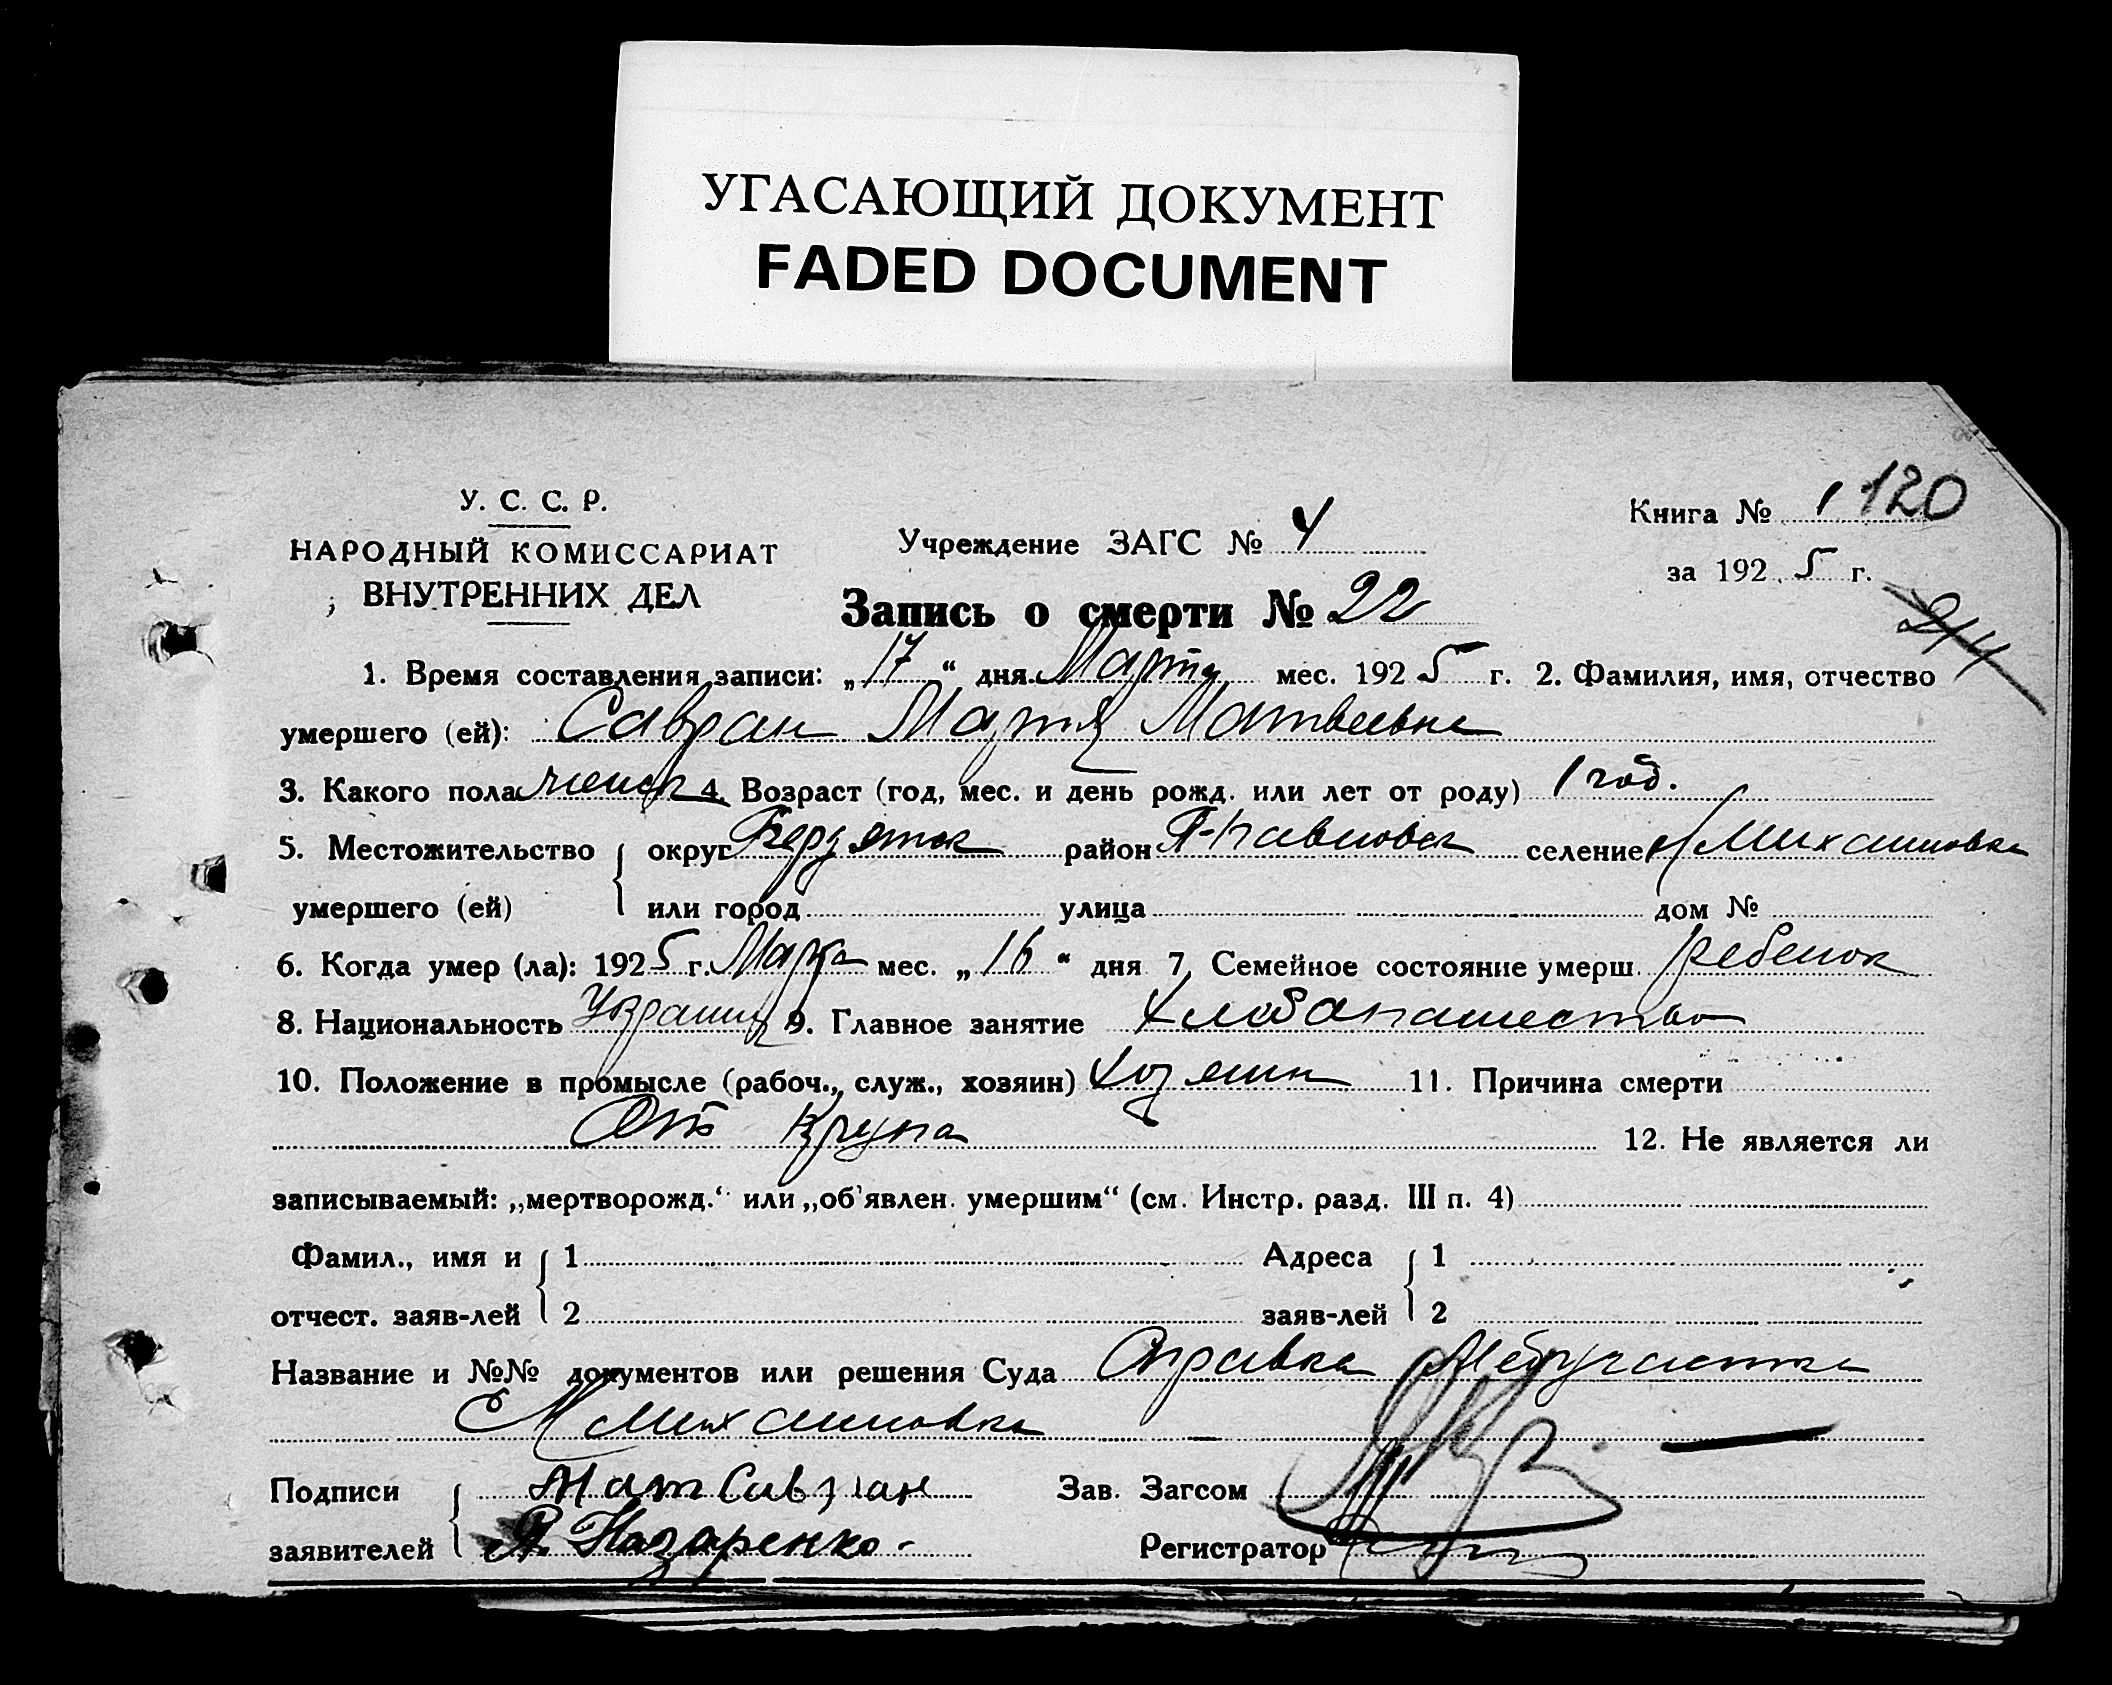 УГАСАЮЩИЙ ДОКУМЕНТ
FADED DOCUMENT
У. С. С. Р.
НАРОДНЫЙ КОМИССАРИАТ
ВНУТРЕННИХ ДЕЛ
Учреждение ЗАГС № 4
Книга № 1 120
за 1925 г.
244
Запись о смерти № 22
1. Время составления записи: „17“ дня Марта мес. 1925 г. 2. Фамилия, имя, отчество
умершего (ей): Савран Мария Матвеевна
3. Какого пола женск 4. Возраст (год, мес. и день рожд. или лет от роду) 1 год.
5. Местожительство округ Бердянск район П-Павловск селение Михайловка
умершего (ей) или город улица дом №
6. Когда умер (ла): 1925 г. Марта мес. „16“ дня 7. Семейное состояние умерш. ребенок
8. Национальность Украин 9. Главное занятие Хлебапашество
10. Положение в промысле (рабоч., служ., хозяин) Хозяин 11. Причина смерти
От Крупа 12. Не является ли
записываемый: „мертворожд.“ или „об'явлен. умершим“ (см. Инстр. разд. III п. 4)
Фамил., имя и 1 Адреса 1
отчест. заяв-лей 2 заяв-лей 2
Название и №№ документов или решения Суда Справка Медучастка
Михайловка
Подписи Мат Савран Зав. Загсом
заявителей Я. Назаренко Регистратор